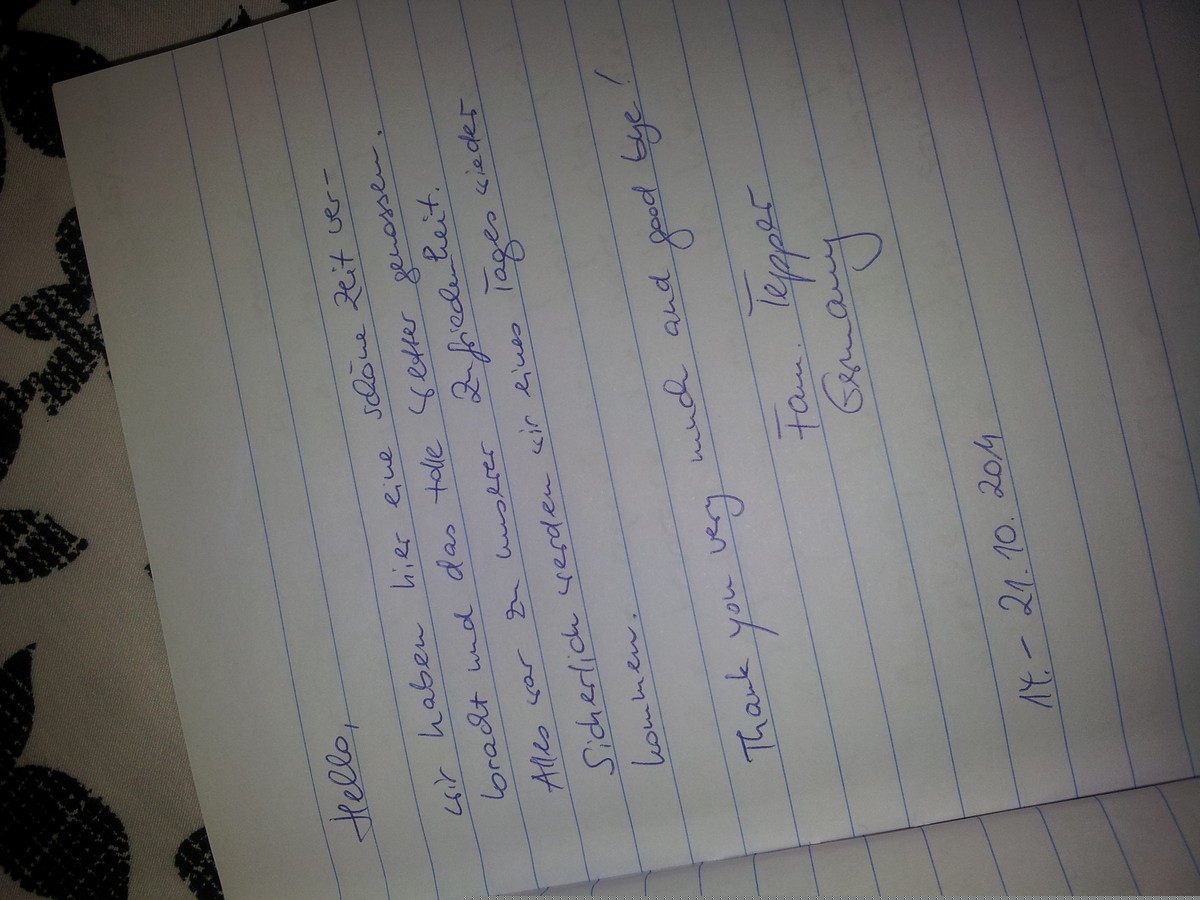 Hello,
wir haben hier eine schöne Zeit ver-
bracht und das tolle Wetter genossen.
Alles war zu unserer Zufriedenheit.
Sicherlich werden wir eines Tages wieder
kommen.
Thank you very much and good bye!
Fam. Tepper
Germany
14.- 21. 10. 2014